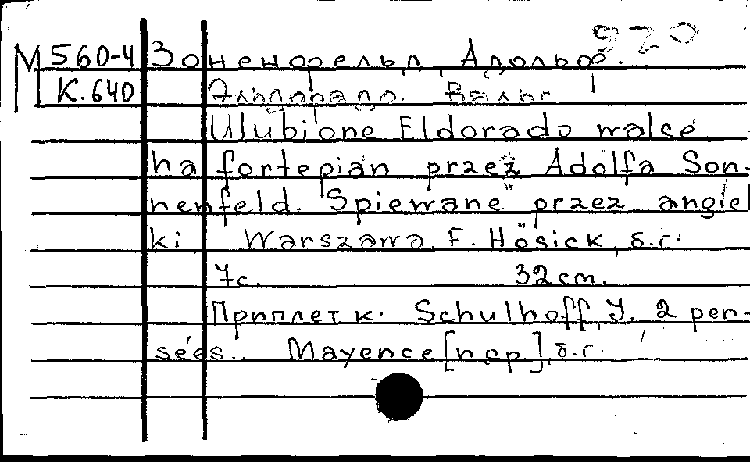 920
М 560-4 Зоненфельд, Адольф.
К.640 Эльдорадо. Вальс
Ulubione Eldorado walce
na fortepian przez Adolfa Son-
nenfeld. "Spiewane" przez angiel
ki Warszawa, F. Hösick, б.г.
7с. 32 cm.
Приплет к: Schulhoff, J. 2 pen-
sées. Mayence [и др.], б.г.